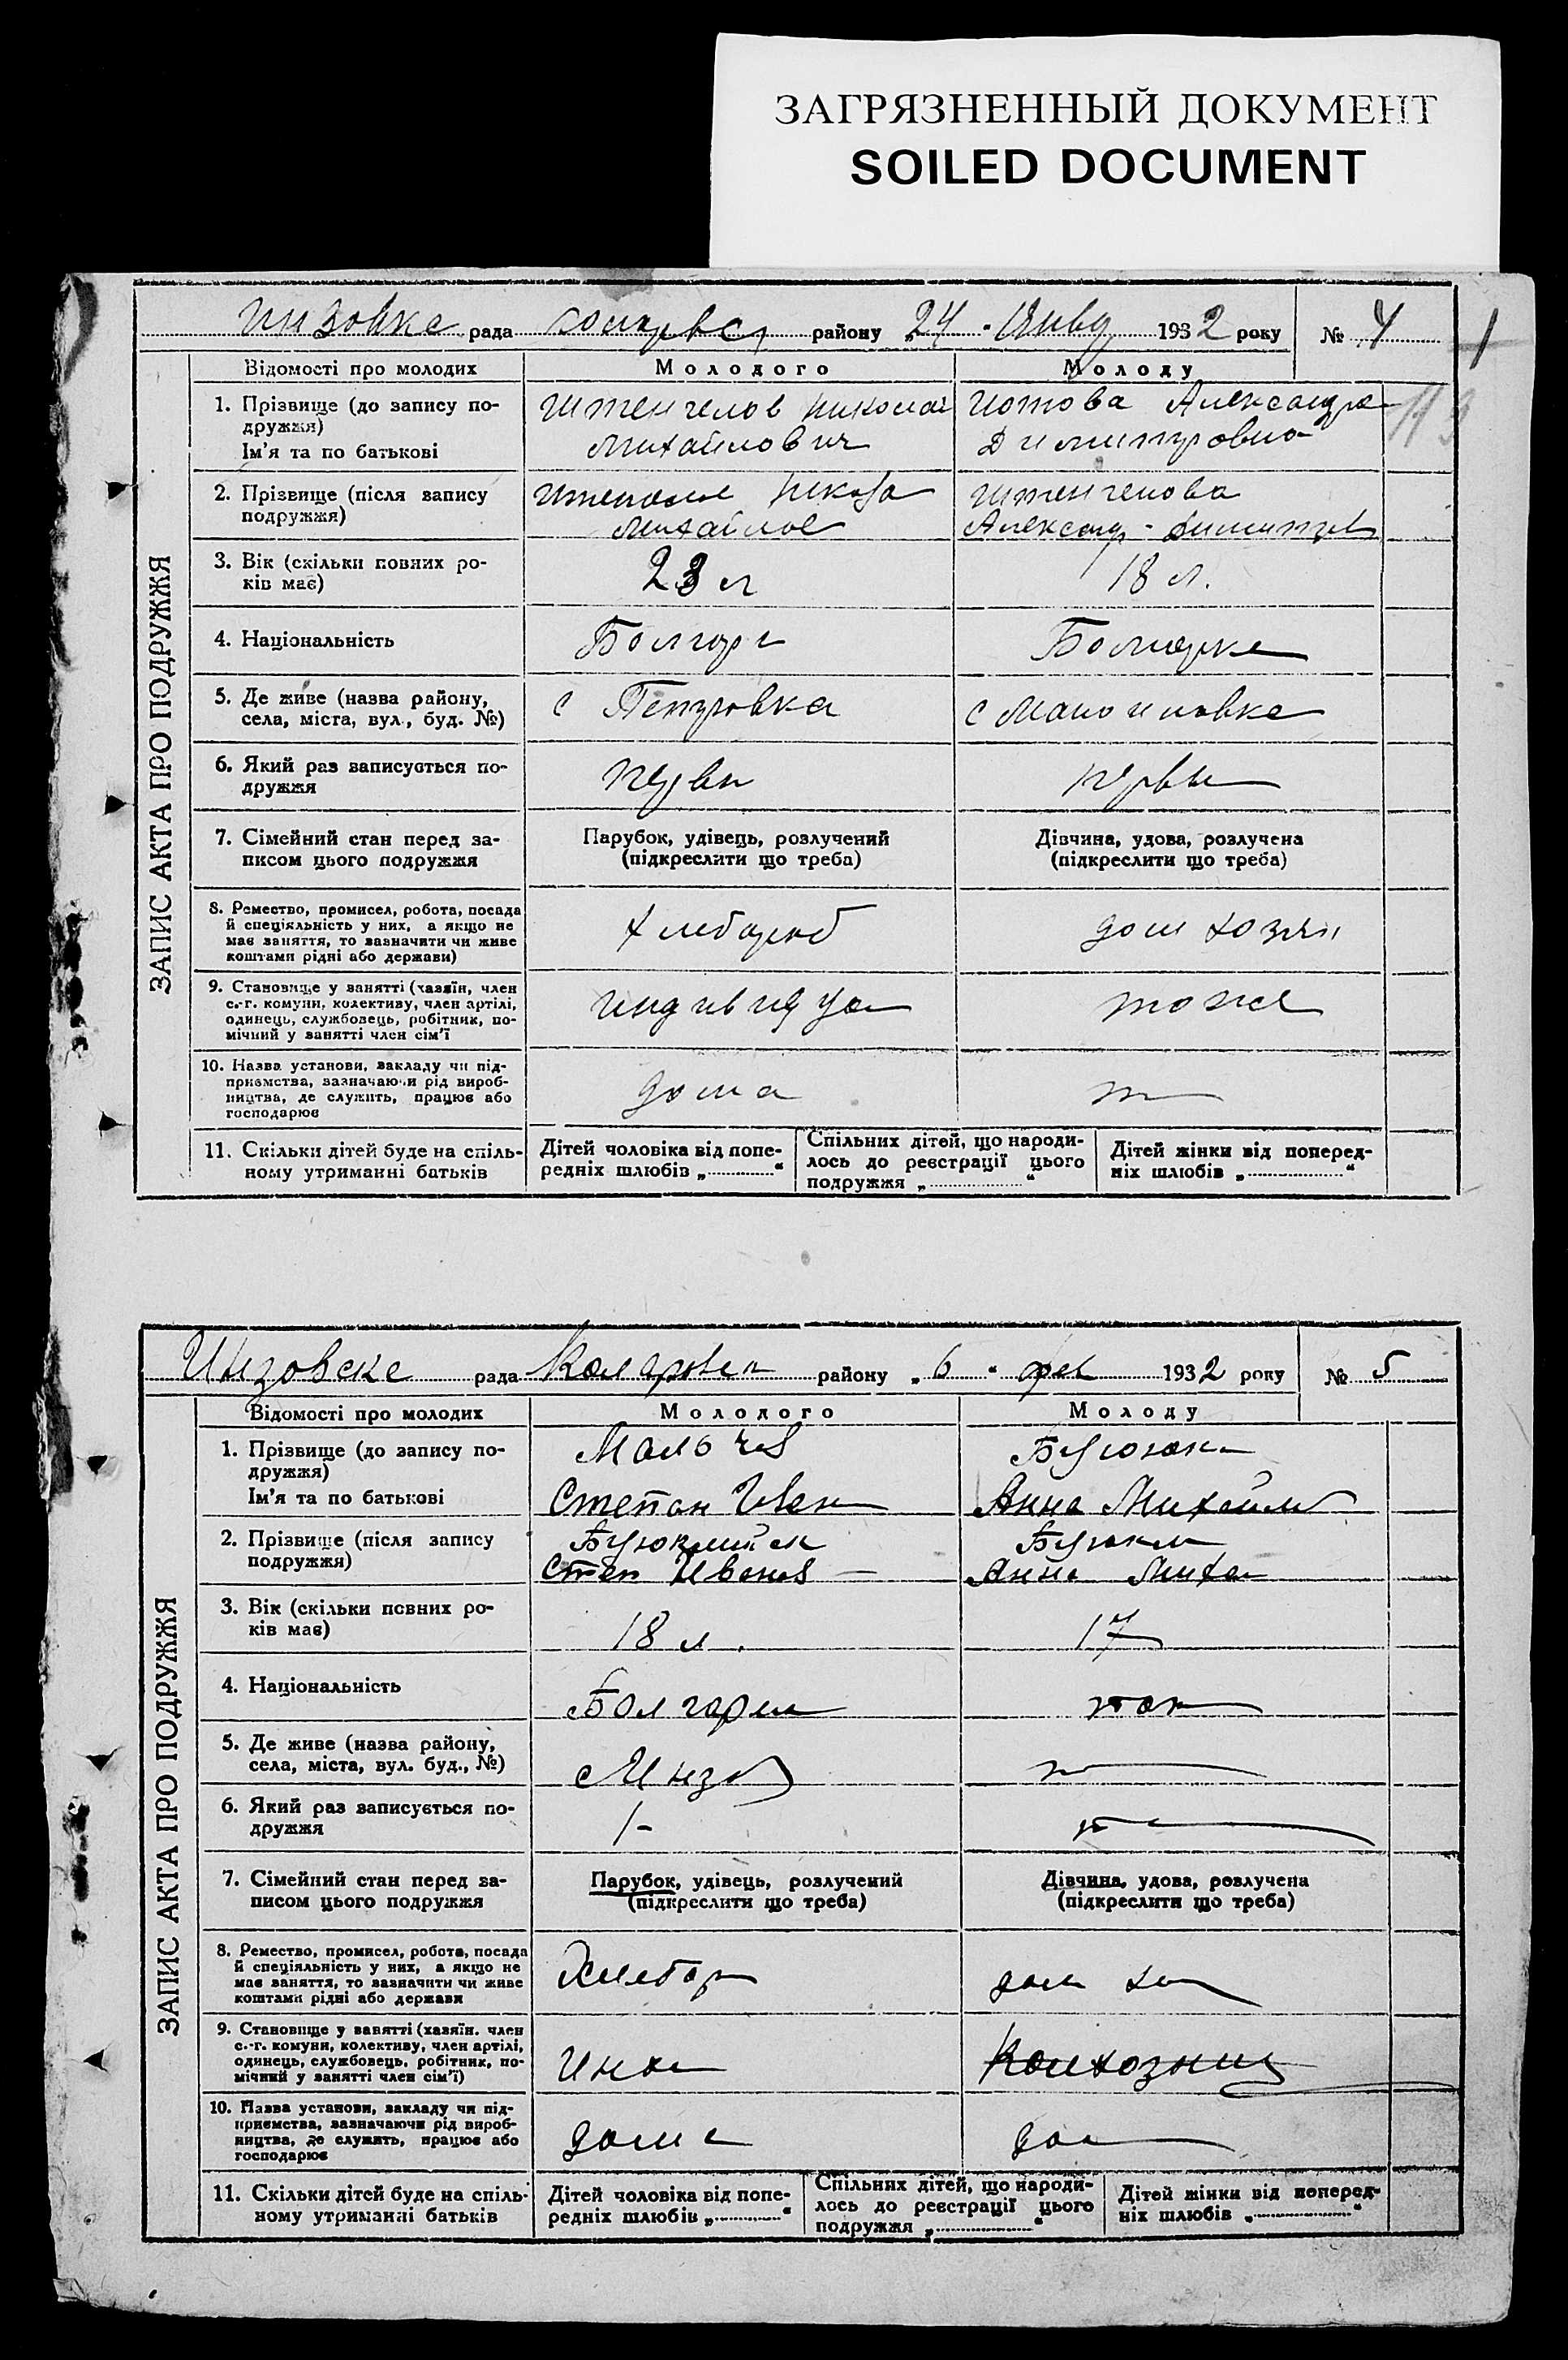 ЗАГРЯЗНЕННЫЙ ДОКУМЕНТ
SOILED DOCUMENT
рада району „24 " Янв 1932 року № 4
1
Відомості про молодих Молодого Молоду
1. Прізвище (до запису по-
дружжя)
Ім'я та по батькові
Штенгелов Николай
Михайлович
Иотова Александра
Димитровна
2. Прізвище (після запису
подружжя)
Михайлов
Штенгелова
Александ- Димитров
3. Вік (скільки повних ро-
ків має)
23 л
18 л.
4. Національність
Болгар
Болгарка
5. Де живе (назва району,
села, міста, вул., буд. №)
с Петровка
с
6. Який раз записується по-
дружжя
перви
первы
7. Сімейний стан перед за-
писом цього подружжя
Парубок, удівець, розлучений
(підкреслити що треба)
Дівчина, удова, розлучена
(підкреслити що треба)
8. Ремество, промисел, робота, посада
й спеціяльність у них, а якщо не
має заняття, то зазначити чи живе
коштами рідні або держави)
Хлебороб
дом хозяи
9. Становище у занятті (хазяїн, член
с.-г. комуни, колективу, член артілі,
одинець, службовець, робітник, по-
мічний у занятті член сім'ї
индивидуа
тоже
10. Назва установи, закладу чи під-
приємства, зазначаючи рід вироб-
ництва, де служить, працює або
господарює
дома
т
11. Скільки дітей буде на спіль-
ному утриманні батьків
Дітей чоловіка від попе-
редніх шлюбів „ “
Спільних дітей, що народи-
лось до реєстрації цього
подружжя „ “
Дітей жінки від поперед-
ніх шлюбів „ “
ЗАПИС АКТА ПРО ПОДРУЖЖЯ
Инзовске рада Коларовск району „6 " фев 1932 року № 5
Відомості про молодих Молодого Молоду
1. Прізвище (до запису по-
дружжя)
Ім'я та по батькові
Мальчев
Степан Иван
Бурюкл
Анна Михайлов
2. Прізвище (після запису
подружжя)
Степ Иванов
Анна Миха
3. Вік (скільки повних ро-
ків має)
18 л.
17
4. Національність
Болгари
так
5. Де живе (назва району,
села, міста, вул. буд., №)
с Инзов
т
6. Який раз записується по-
дружжя
1-
т
7. Сімейний стан перед за-
писом цього подружжя
Парубок, удівець, розлучений
(підкреслити що треба)
Дівчина, удова, розлучена
(підкреслити що треба)
8. Ремество, промисел, робота, посада
й спеціяльність у них, а якщо не
має заняття, то зазначити чи живе
коштами рідні або держави
Хлебор
дом хо
9. Становище у занятті (хазяїн. член
с.-г. комуни, колективу, член артілі,
одинець, службовець, робітник, по-
мічний у занятті член сім'ї)
Колхозниц
10. Назва установи, закладу чи під-
приємства, зазначаючи рід вироб-
ництва, де служить, працює або
господарює
дома
до
11. Скільки дітей буде на спіль-
ному утриманні батьків
Дітей чоловіка від попе-
редніх шлюбів „ “
Спільних дітей, що народи-
лось до реєстрації цього
подружжя „ “
Дітей жінки від поперед-
ніх шлюбів „ “
ЗАПИС АКТА ПРО ПОДРУЖЖЯ